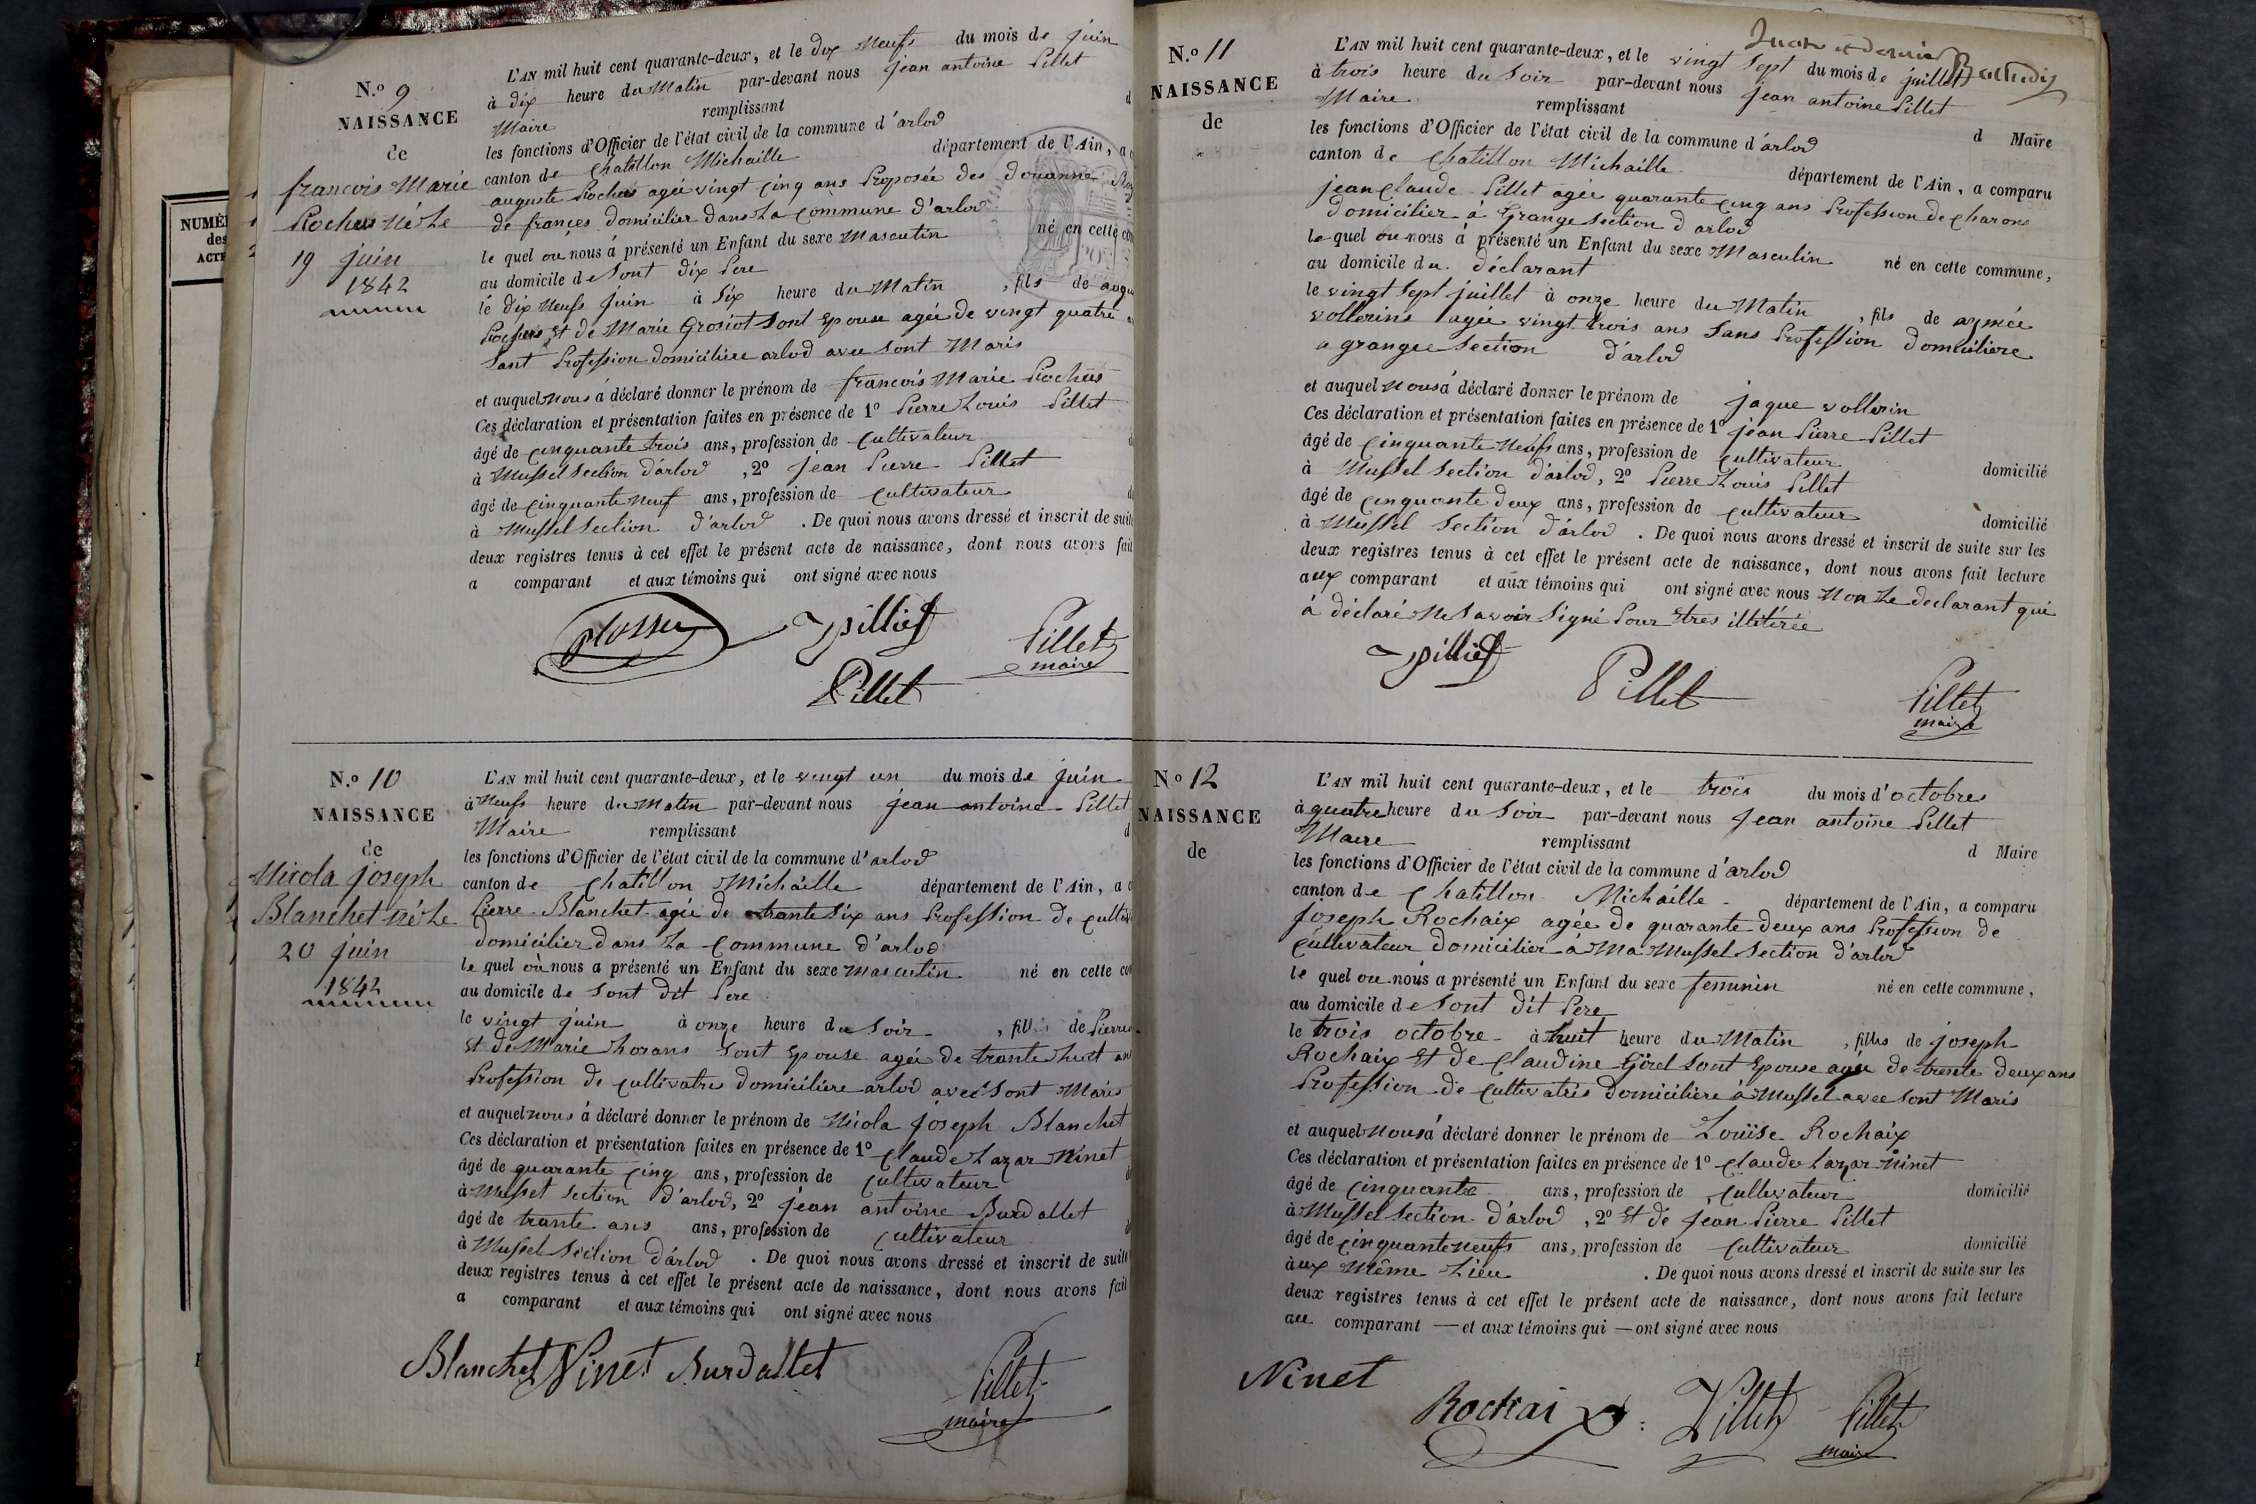 NUMÉ
des
ACT
N.o 9
NAISSANCE
de
francois Marie
Rochus né Le
19 juin
1842
L'AN mil huit cent quarante-deux, et le dix neufs du mois de juin
à dix heure du Matin par-devant nous jean antoine Pillet
Maire remplissant
les fonctions d'Officier de l'état civil de la commune d'arlod
canton de Chatillon Michaille département de l'Ain, a
auguste agée vingt cinq ans Proposée des douanne
de françes domicilier dans La commune d'arlod
le quel ou nous á présenté un Enfant du sexe Masculin né en cette
au domicile de Sont dix Pere
le dix neufs juin à Six heure du Matin , fils de
Et de Marie Grosiot Sont Epouse agée de vingt quatre
Sant Profession domicilière arlod avec Sont Maris
et auquel nous á déclaré donner le prénom de francois Marie Rochus
Ces déclaration et présentation faites en présence de 1o Pierre Louis Pillet
âgé de cinquante trois ans, profession de Cultivateur
à Mussel Section d'arlod , 2o jean Pierre Pillet
âgé de cinquante neuf ans, profession de Cultivateur
à Mussel Section d'arlod . De quoi nous avons dressé et inscrit de suite
deux registres tenus à cet effet le présent acte de naissance, dont nous avons fait
a comparant et aux témoins qui ont signé avec nous
Pillet
maire
Pillet
N.o 10
NAISSANCE
de
Nicola joseph
Blanchet né Le
20 juin
1842
L'AN mil huit cent quarante-deux, et le vingt un du mois de juin
à Neufs heure du Matin par-devant nous jean antoine Pillet
Maire remplissant
les fonctions d'Officier de l'état civil de la commune d'arlod
canton de Chatillon Michaille département de l'Ain, a
Pierre Blanchet agée de trante Six ans Profession de
domicilier dans La Commune d'arlod
le quel où nous a présenté un Enfant du sexe masculin né en cette
au domicile de Sont dit Pere
le vingt juin à onze heure du Soir , fils de Pierre
Et de Marie Sont Epouse agée de trante huit
Profession de cultivatre domicilière arlod avec Sont Maris
et auquel nous á déclaré donner le prénom de Nicola joseph Blanchet
Ces déclaration et présentation faites en présence de 1o Claude Lazar Ninet
âgé de quarante cinq ans, profession de cultivateur
à Mussel Section d'arlod, 2o jean antoine Burdallet
âgé de trante ans ans, profession de cultivateur
à Mussel Section d'arlod . De quoi nous avons dressé et inscrit de suite
deux registres tenus à cet effet le présent acte de naissance, dont nous avons fait
a comparant et aux témoins qui ont signé avec nous
Blanchet Ninet Burdallet
Pillet
maire
N.o 11
NAISSANCE
de
L'AN mil huit cent quarante-deux, et le vingt Sept du mois de juillet
à trois heure du Soir par-devant nous jean antoine Pillet
Maire remplissant d Maire
les fonctions d'Officier de l'état civil de la commune d'arlod
canton de Chatillon Michaille département de l'Ain, a comparu
jean Claude Pillet agée quarante cinq ans Profession de Charons
domicilier á Grange Section d'arlod
le quel ou nous á présenté un Enfant du sexe Masculin né en cette commune,
au domicile du déclarant
le vingt Sept juillet à onze heure du Matin , fils de aymée
vollerins agée vingt trois ans Sans Profession domicilière
a grange Section d'arlod
et auquel nous á déclaré donner le prénom de jaque vollerin
Ces déclaration et présentation faites en présence de 1o jean Pierre Pillet
âgé de cinquante Neufs ans, profession de cultivateur domicilié
à Mussel Section d'arlod, 2o Pierre Louis Pillet
âgé de cinquante deux ans, profession de cultivateur domicilié
à Mussel Section d'arlod . De quoi nous avons dressé et inscrit de suite sur les
deux registres tenus à cet effet le présent acte de naissance, dont nous avons fait lecture
aux comparant et aux témoins qui ont signé avec nous Non Le declarant qui
á déclaré Ne Savoir Signé Pour Etres illitérée
Pillet
Pillet
maire
N.o 12
NAISSANCE
de
L'AN mil huit cent quarante-deux, et le trois du mois d'octobres
à quatre heure du Soir par-devant nous jean antoine Pillet
Maire remplissant d Maire
les fonctions d'Officier de l'état civil de la commune d'arlod
canton de Chatillon Michaille département de l'Ain, a comparu
joseph Rochaix agée de quarante deux ans Profession de
cultivateur domicilier à Ma Mussel Section d'arlod
le quel ou nous a présenté un Enfant du sexe feminin né en cette commune,
au domicile de Sont dit Pere
le trois octobre à huit heure du Matin , filles de joseph
Rochaix Et de Claudine Sont Epouse agée de trente deux ans
Profession de cultivatris domicilière á Mussel avec Sont Maris
et auquel nous á déclaré donner le prénom de Louise Rochaix
Ces déclaration et présentation faites en présence de 1o Claude Lazar Ninet
âgé de cinquante ans, profession de cultivateur domicilié
à Mussel Section d'arlod , 2o Et de jean Pierre Pillet
âgé de cinquante neufs ans, profession de cultivateur domicilié
àux Même Lieu . De quoi nous avons dressé et inscrit de suite sur les
deux registres tenus à cet effet le présent acte de naissance, dont nous avons fait lecture
au comparant — et aux témoins qui — ont signé avec nous
Ninet
Rochaix Pillet Pillet
maire